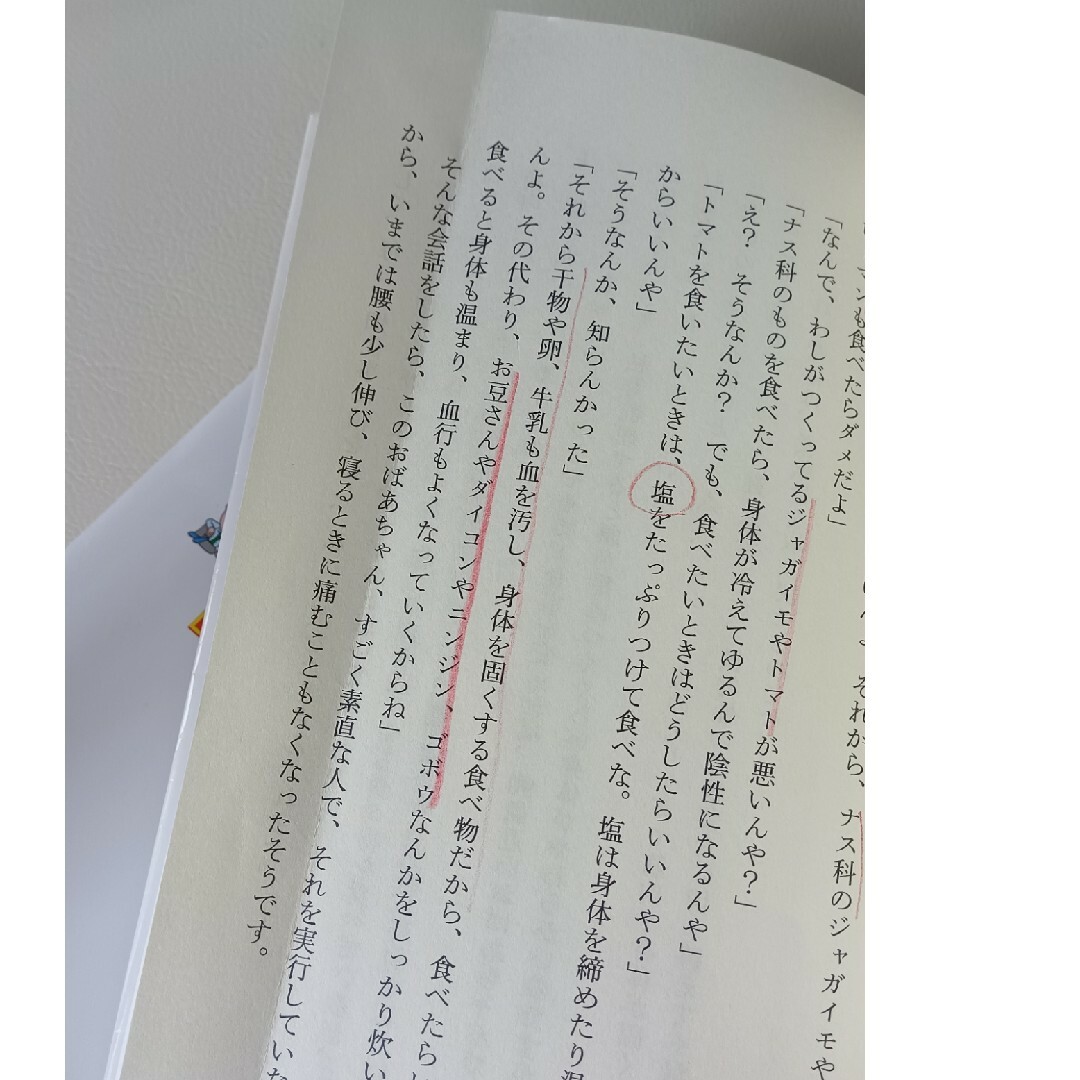 マンも食べたらダメだよ」 それから、ナス科のジャガイモや
「なんで、わしがつくってるジャガイモやトマトが悪いんや？」
「ナス科のものを食べたら、身体が冷えてゆるんで陰性になるんや」
「え？　そうなんか？　でも、食べたいときはどうしたらいいんや？」
「トマトを食いたいときは、塩をたっぷりつけて食べな。塩は身体を締めたり温
からいいんや」
「そうなんか、知らんかった」
「それから干物や卵、牛乳も血を汚し、身体を固くする食べ物だから、食べたら
んよ。その代わり、お豆さんやダイコンやニンジン、ゴボウなんかをしっかり炊い
食べると身体も温まり、血行もよくなっていくからね」
そんな会話をしたら、このおばあちゃん、すごく素直な人で、それを実行していな
から、いまでは腰も少し伸び、寝るときに痛むこともなくなったそうです。